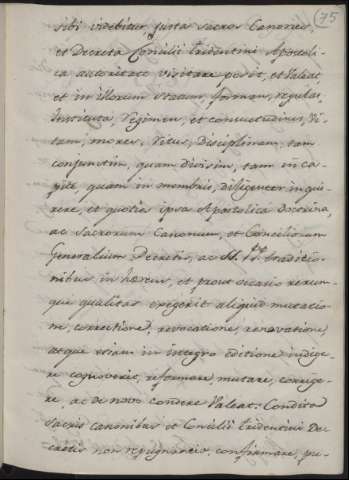 75
sibi videbitur juxta sacros Canones,
et Decreta Concilii tridentini Apostoli-
ca autoritate visitare possit, et valeat,
et in illorum statum, formam, regulas,
Instituta, Regimen, et consuetudines, Vi-
tam, mores, Ritus, Disciplinam, tam
conjunctim, quam divisim, tam in ca-
pite, quam in membris, diligenter inqui-
rere, et quoties ipsa Apostolica Doctrina,
ac Sacrorum Canonum, et Conciliorum
Generalium Decretis, ac SS. PP. traditio-
nibus in hærens, et prout occasio rerum-
que qualitas exigerit aliquid mutatio-
ne, correctione, revocatione, renovatione,
atque etiam in integro editione indige-
re cognoverit, reformare mutare, corrige-
re, ac de novo condere Valeat: Condita
Sacris canonibus et Concilii tridentini De-
cretis non repugnantia, confirmare, pu-